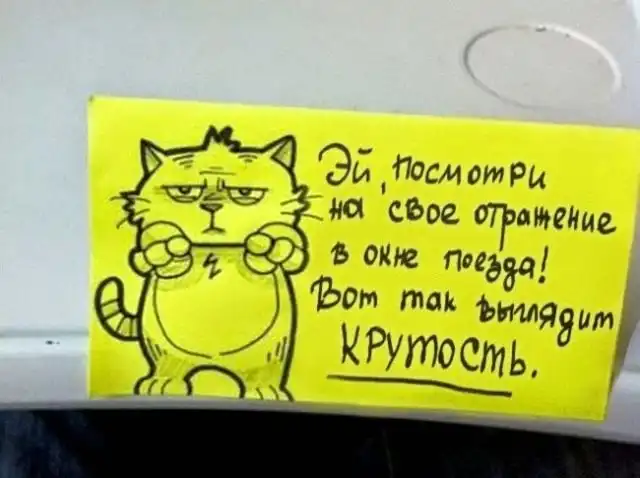 Эй, посмотри
на свое отражение
в окне поезда!
Вот так выглядит
КРУТОСТЬ.